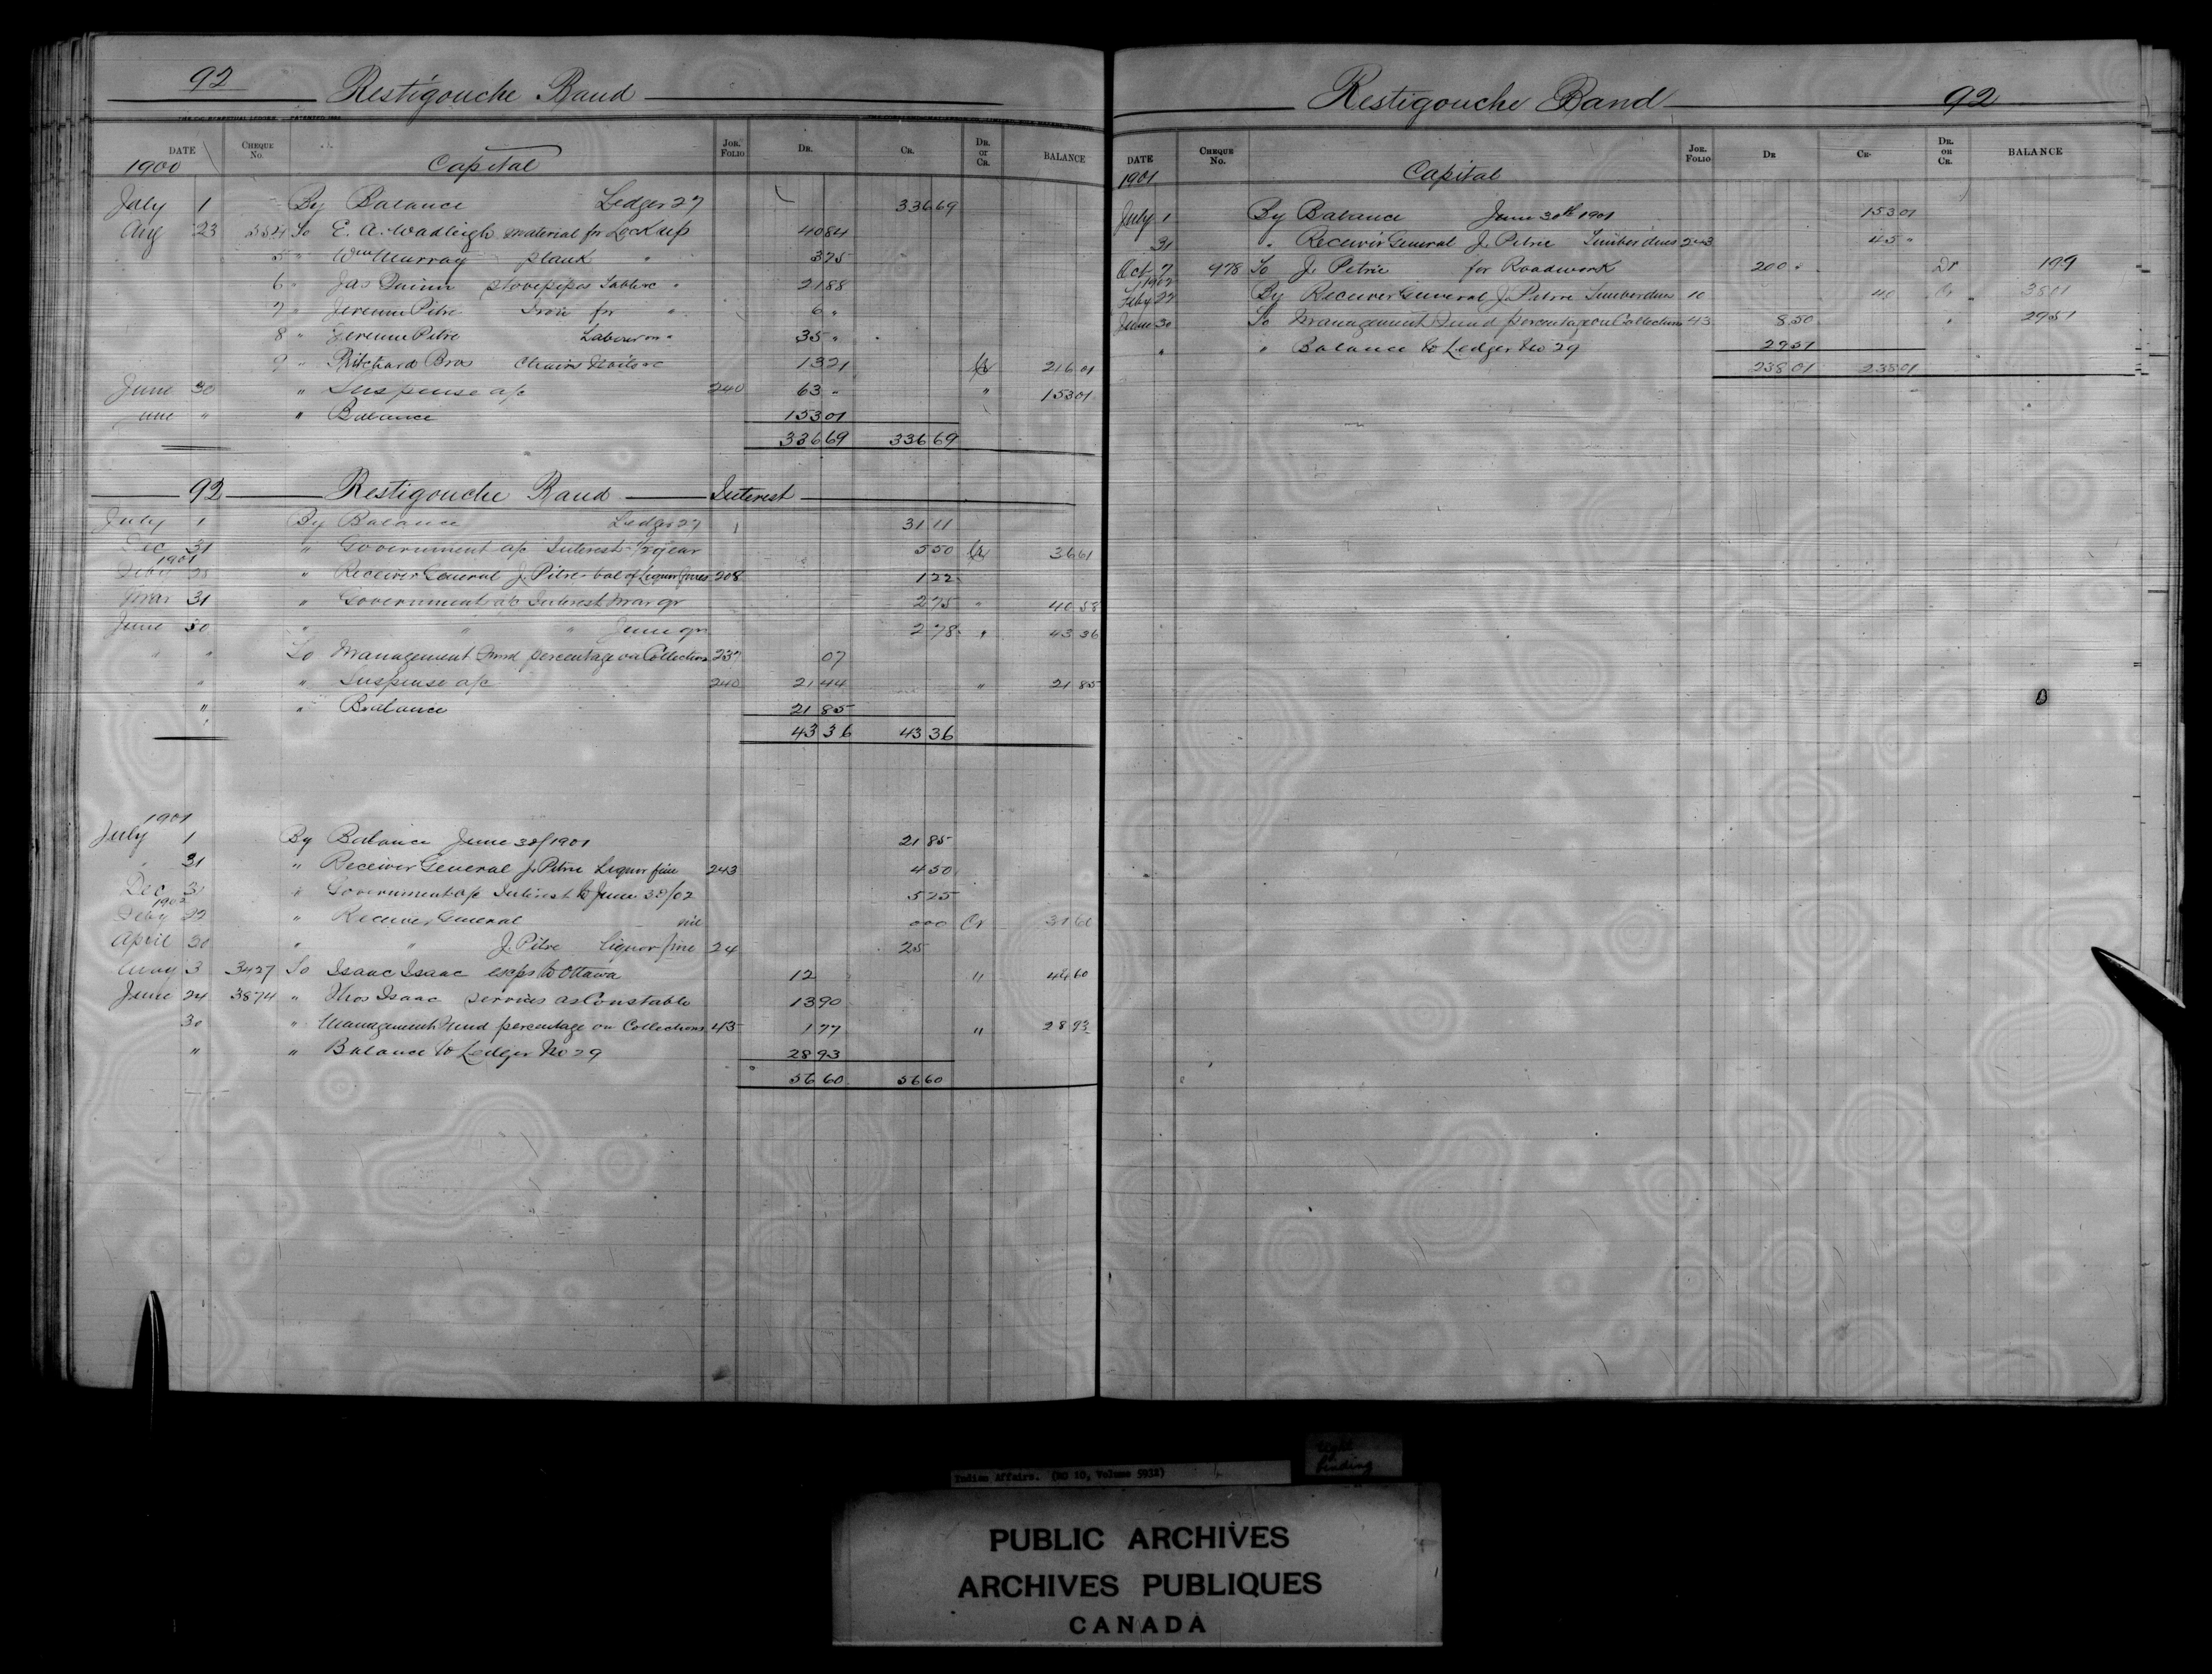 92 Restigouche Band
DATE CHEQUE No. JOR. FOLIO DR. CR. DR. OR CR. BALANCE
1900 Capital
July 1 By Balance Ledger 27 336 69
Aug 23 554 To E. A. Wadleigh material for Lock up 40 84
5 " Wm Murray plank " 3 75
6 " Jas Quinn stovepipes Table &c " 21 88
7 " Jeremie Pitre Iron for " 6 "
8 " Jeremie Pitre Labour on " 35 "
9 " Ritchard Bros Chairs Nails &c 13 21 Cr 216 01
June 30 " Suspense a/c 240 63 " " 153 01
June " " Balance 153 01
336 69 336 69
92 Restigouche Band Interest
July 1 By Balance Ledger 27 31 11
Dec 31 " Government a/c Interest 1/2 year 5 50 Cr 36 61
1901
Feby 28 " Receiver General J. Pitre bal of Liquor fines 208 1 22
Mar 31 " Government a/c Interest Mar qr 2 75 " 40 58
June 30 " " " June qr 2 78 " 43 36
" " To Management Fund percentage on Collections 237 07
" " Suspense a/c 240 21 44 " 21 85
" " Balance 21 85
43 36 43 36
1901
July 1 By Balance June 30/1901 21 85
" 31 " Receiver General J. Petrie Liquor fine 243 4 50
Dec 31 " Government a/c Interest to June 30/02 5 25
1902
Feby 22 " Receiver General nil 000 Cr 31 60
April 30 " " J. Pitre Liquor fine 24 25
May 3 3427 To Isaac Isaac exps to Ottawa 12 " 44 60
June 24 3874 " Thos Isaac services as Constable 13 90
30 " Management Fund percentage on Collections 43 1 77 " 28 93
" " Balance to Ledger No 29 28 93
56 60 56 60
Restigouche Band 92
DATE CHEQUE No. JOR. FOLIO DR CR. DR. OR CR. BALANCE
1901 Capital
July 1 By Balance June 30th 1901 153 01
31 " Receiver General J. Petrie Timber dues 243 45 "
Oct 7 978 To J. Petrie for Roadwork 200 " Dr 1 99
1902
Feby 22 By Receiver General J. Petrie Timber dues 10 40 Cr 38 01
June 30 To Management Fund percentage on Collections 43 8 50 " 29 51
" " Balance to Ledger No 29 29 51
238 01 238 01
Indian Affairs. (RG 10, Volume 5932)
tight binding
PUBLIC ARCHIVES
ARCHIVES PUBLIQUES
CANADA